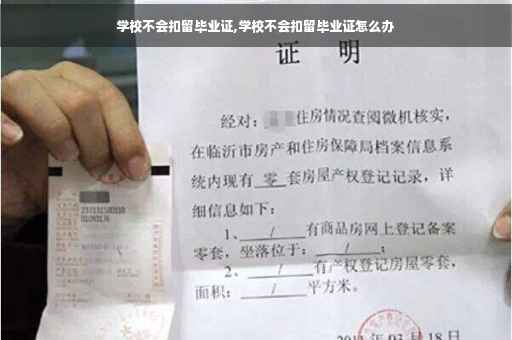 学校不会扣留毕业证,学校不会扣留毕业证怎么办
证 明
经对：住房情况查阅微机核实，
在临沂市房产和住房保障局档案信息系
统内现有 零 套房屋产权登记记录，详
细信息如下：
1、 / 有商品房网上登记备案
零套，坐落位于： / ；
2、 / 有产权登记房屋零套，
面积： / 平方米。
03 月 18 日